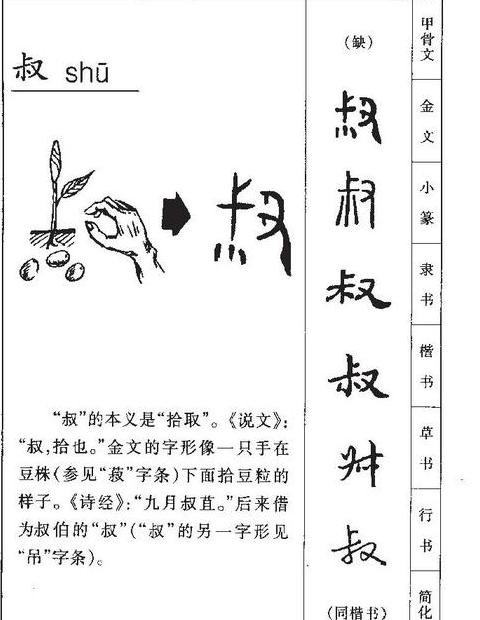 叔 shū
叔
“叔”的本义是“拾取”。《说文》:
“叔,拾也。”金文的字形像一只手在
豆株(参见“菽”字条)下面拾豆粒的
样子。《诗经》:“九月叔苴。”后来借
为叔伯的“叔”(“叔”的另一字形见
“吊”字条)。
(缺) 甲骨文
叔 金文
叔 小篆
叔 隶书
叔 楷书
叔 草书
叔 行书
(同楷书) 简化